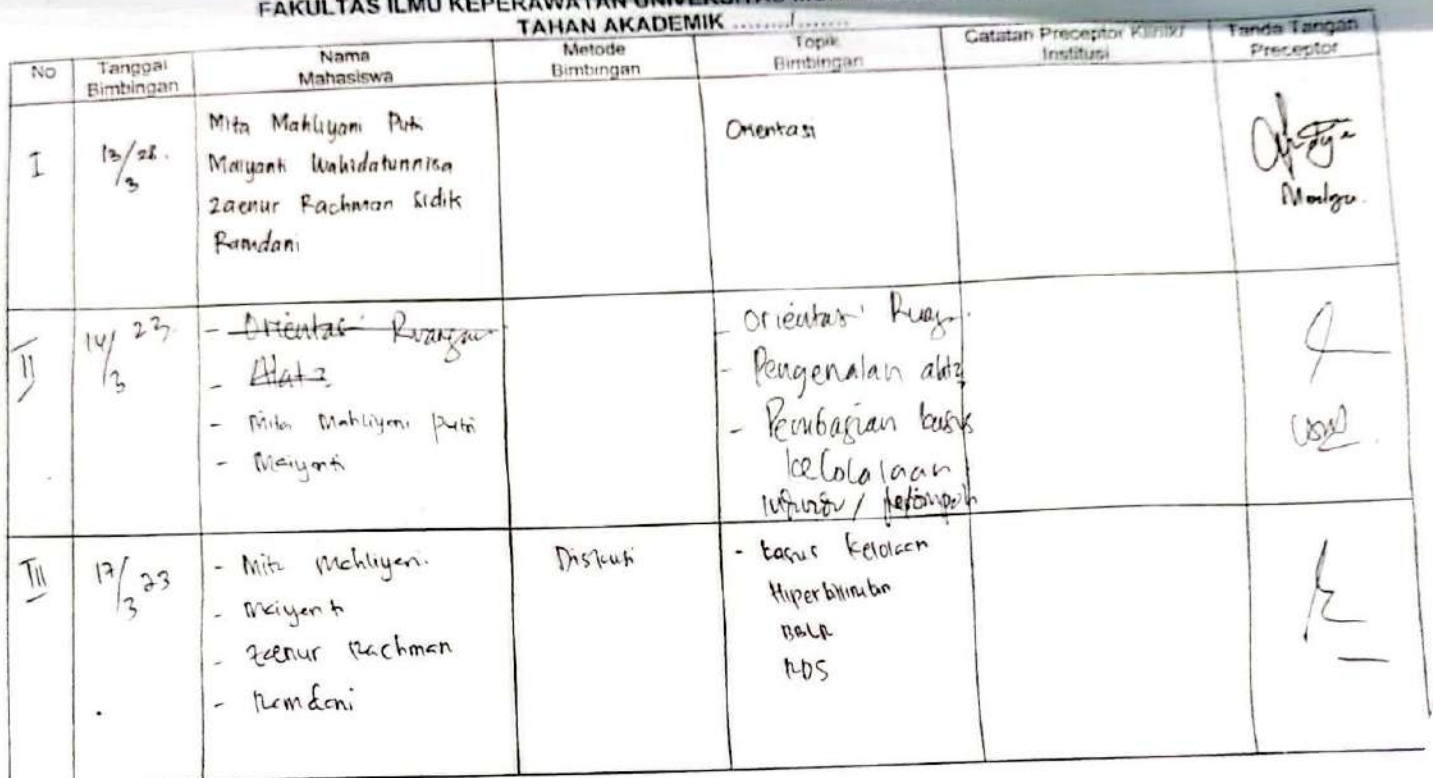 FAKULTAS ILMU KEPERAWATAN UNIVERSITAS
TAHAN AKADEMIK ........./.........
No
Tanggal
Bimbingan
Nama
Mahasiswa
Metode
Bimbingan
Topik
Bimbingan
Catatan Preceptor Klinik/
Institusi
Tanda Tangan
Preceptor
I
13/3
Mita Mahliyani Putri
Maiyanti Wahidatunnisa
Zaenur Rachman Sidik
Ramdani
Orientasi
II
14/3 23
- Orientasi Ruangan
- Alat2
- Mita Mahliyani Putri
- Maiyanti
- Orientasi Ruang.
- Pengenalan alat2
- Pembagian kasus
kelolalaan
/ kelompok
III
17/3 23
- Mita Mahliyani.
- Maiyanti
- Zaenur Rachman
- Ramdani
Diskusi
- kasus kelolaan
Hiperbilirubin
BBLR
RDS